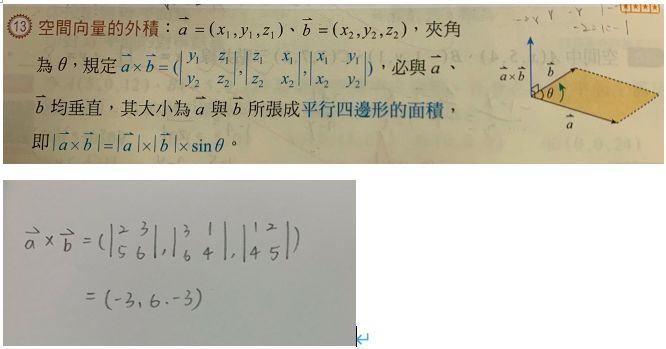 ⑬ 空間向量的外積：a⃗ = (x₁, y₁, z₁)、b⃗ = (x₂, y₂, z₂)，夾角
為 θ，規定 a⃗ × b⃗ = (|y₁ z₁; y₂ z₂|, |z₁ x₁; z₂ x₂|, |x₁ y₁; x₂ y₂|)，必與 a⃗、
b⃗ 均垂直，其大小為 a⃗ 與 b⃗ 所張成平行四邊形的面積，
即 |a⃗ × b⃗| = |a⃗| × |b⃗| × sin θ。
a⃗ × b⃗
b⃗
θ
a⃗
a⃗ × b⃗ = (|2 3; 5 6|, |3 1; 6 4|, |1 2; 4 5|)
= (-3, 6. -3)